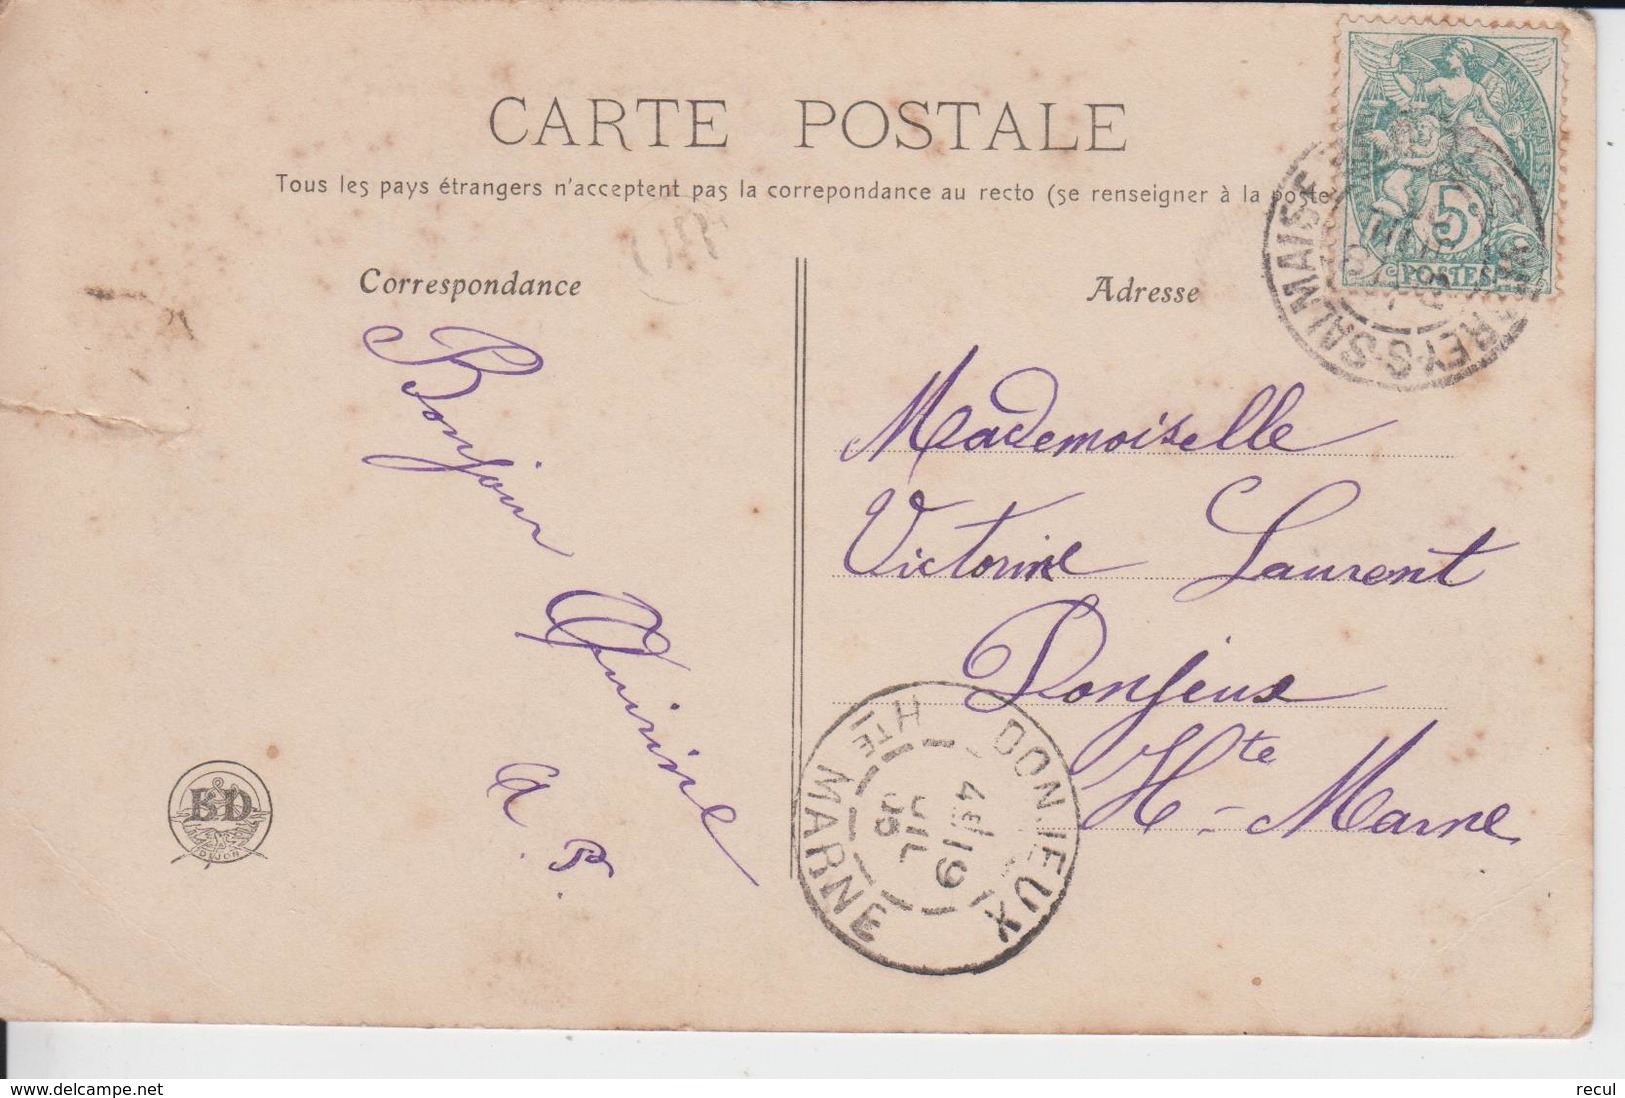 CARTE POSTALE
Tous les pays étrangers n'acceptent pas la correpondance au recto (se renseigner à la poste
Correspondance
Bonjour
Quirine
a. P.
BD
DIJON
Adresse
Mademoiselle
Victorine Laurent
Donjeux
Hte-Marne
5c
POSTES
SALMAISE
DONJEUX
Hte MARNE
4E/19
JUIL
05
www.delcampe.net
recul